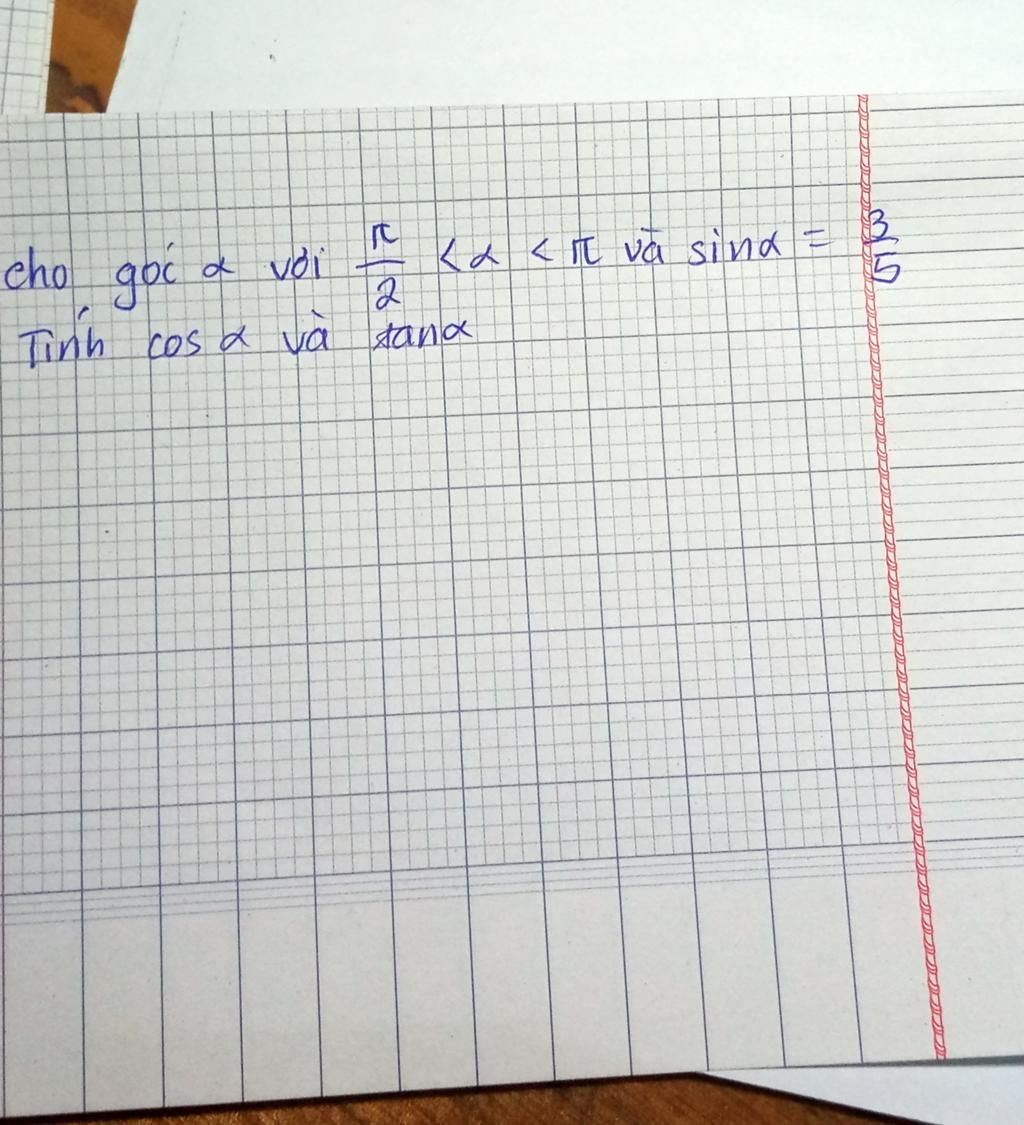 cho góc α với π/2 < α < π và sinα = 3/5
Tính cos α và tanα